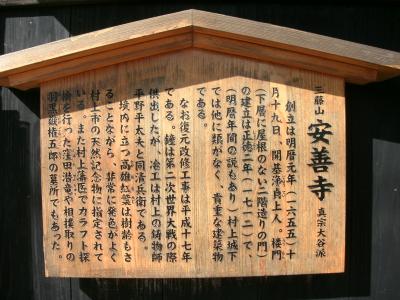 三藤山 安善寺 真宗大谷派
創立は明暦元年(一六五五)十
月十九日、開基浄貞上人。楼門
(下層に屋根のない二階造りの門)
の建立は正徳二年(一七一二)、
(明暦年間の説もあり)村上城下
では他に類がなく、貴重な建築物
である。
なお復元改修工事は平成十七年
である。鐘は第二次世界大戦の際
供出したが、冶工は村上の鋳物師
平野平太夫と同清兵衛である。
境内に立つ高雄紅雲は樹齢もさ
ることながら、非常に発色がよく
村上市の天然記念物に指定されて
いる。また村上藩医でカラフト探
検を行った窪田潜竜や相撲取りの
羽黒嶽権五郎の墓所でもあった。